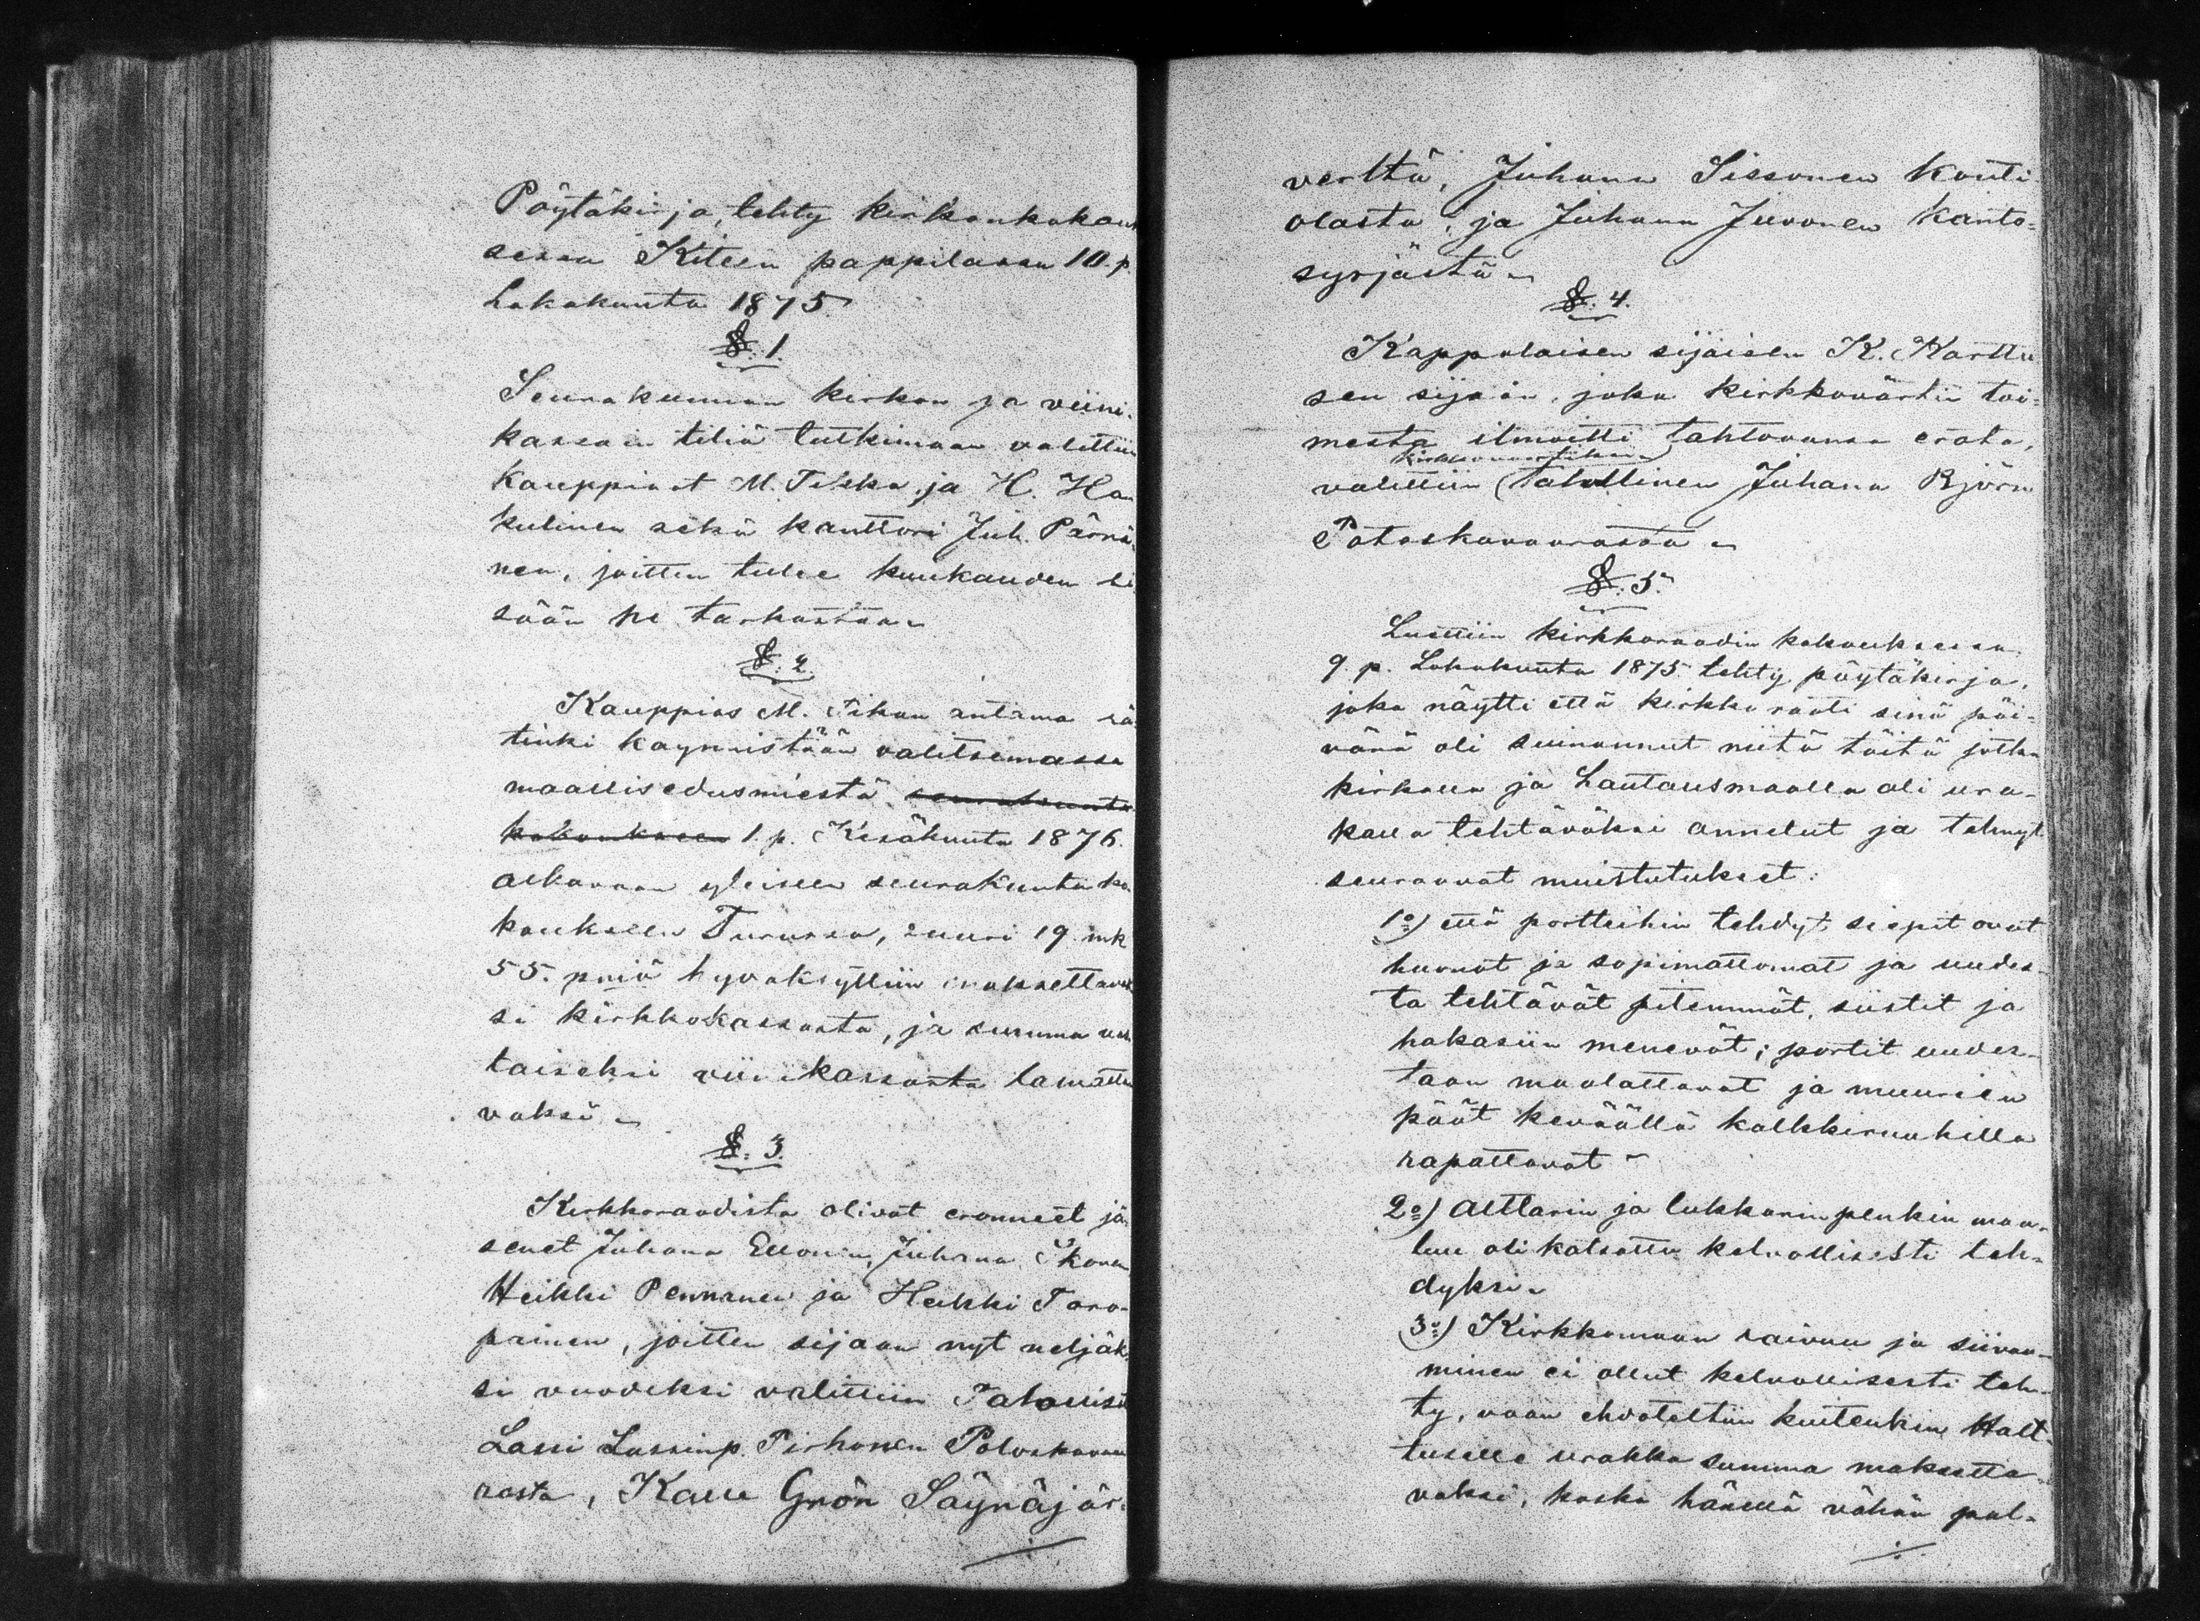 Pöytäkirja, tehty kirkonkokouk
sessa Kiteen pappilassa 10. p.
Lokakuuta 1875.
§. 1.
Seurakunnan kirkon ja viini-
kassain tiliä tutkimaan valittiin
Kauppiaat M. Tikka ja H. Ha
kulinen sekä kanttori Juh. Pärnä
nen, joitten tulee kuukauden si
sään ne tarkastaa.
§. 2.
Kauppias M. Tikan antama rä
tinki käynnistään valitsemassa
maallisedusmiestä seurakunta
kokoukseen 1. p. Kesäkuuta 1876.
alkavaan yleiseen seurakunta ko
koukseen Turussa, suuri 19 mk
55. pniä hyväksyttiin maksettavak
si kirkkokassasta, ja summa vas
taiseksi viinikassasta lainatta
vaksi.
§. 3.
Kirkkoraadista olivat eronneet jä
senet Juhana Ellonen, Juhana Ikonen
Heikki Pennanen ja Heikki Taro-
painen, joitten sijaan nyt neljäk
si vuodeksi valittiin Talolliset
Lassi Lassinp. Pirhonen Potoskavaa
rasta, Kalle Grön Säynäjär-
veltä, Juhana Sissonen Konti-
olasta, ja Juhana Juvonen Kanto-
syrjästä.
§. 4.
Kappalaisen sijaisen K. Karttu
sen sijaan, joka kirkkovärtin toi-
mesta ilmoitti tahtovansa erota,
kirkkovärtiksi
valittiin Talollinen Juhana Björn
Potoskavaarasta.
§. 5.
Luettiin kirkkoraadin kokouksessa
9. p. Lokakuuta 1875 tehty pöytäkirja,
joka näytti että kirkkoraati sinä päi-
vänä oli suinannut niitä töitä jotka
kirkolla ja Hautausmaalla oli ura-
kalla tehtäväksi annetut ja tehnyt
seuraavat muistutukset:
1o) että portteihin tehdyt siepit ovat
huonot ja sopimattomat ja uudes-
ta tehtävät pitemmät, siistit ja
hakasiin menevät; portit uudes-
taan maalattavat ja muurien
päät keväällä kalkkiruukilla
rapattavat
2o) Alttarin ja lukkarinpenkin maa-
luu oli katsottu kelvollisesti teh-
dyksi.
3o) Kirkkomaan raivuu ja siivoo-
minen ei ollut kelvollisesti teh-
ty, vaan ehdoteltiin kuitenkin Halt-
tuselle urakka summa maksetta-
vaksi, koska hänellä vähän pal-